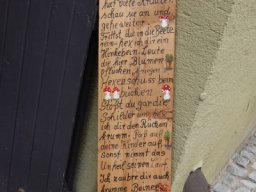 hat viele Kräuter,
schau sie an und
gehe weiter.
Trittst du in die Beete
rein - hex ich dir ein
Leute
die hier Blumen
pflücken, kriegen
Hexenschuss beim
bücken
Stößt du gar die
Schilder um,
ich dir den Rücken
krumm. Paß auf
deine Kinder auf,
sonst nimmt das
Unheil seinen Lauf.
Ich zaubre dir auch
krumme Beine!